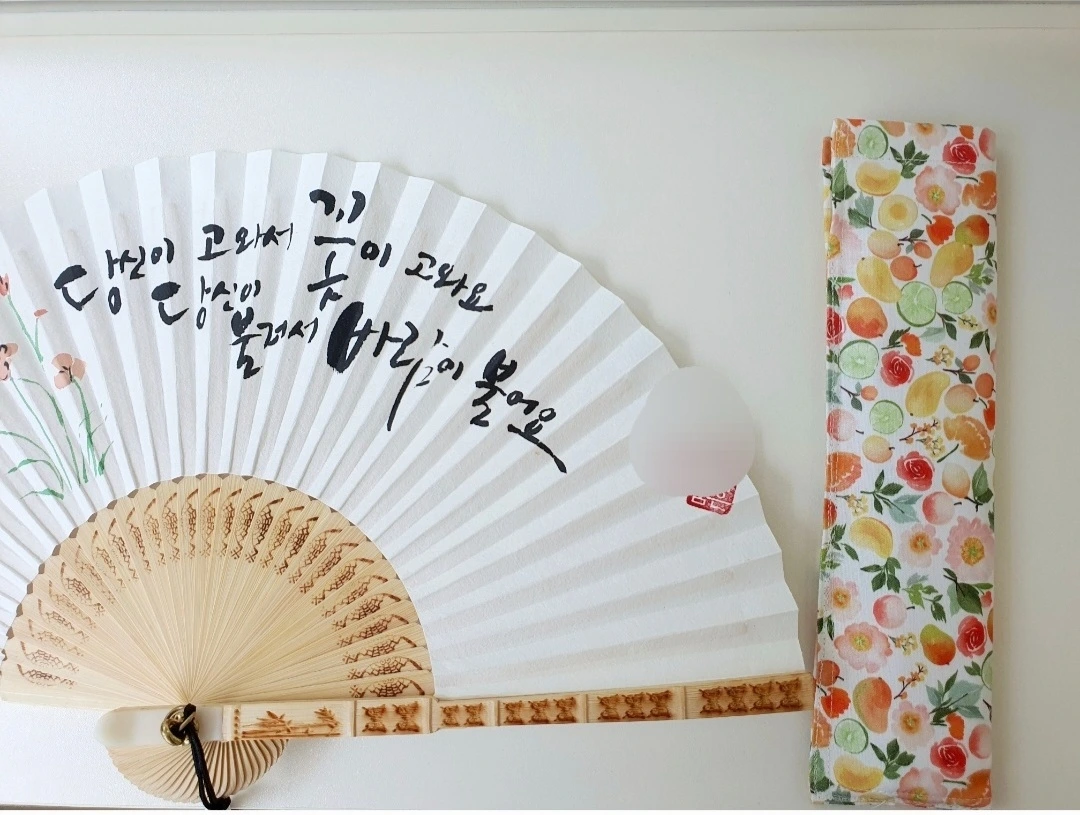 당신이 고와서 꽃이 고와요
당신이 불러서 바람이 불어요